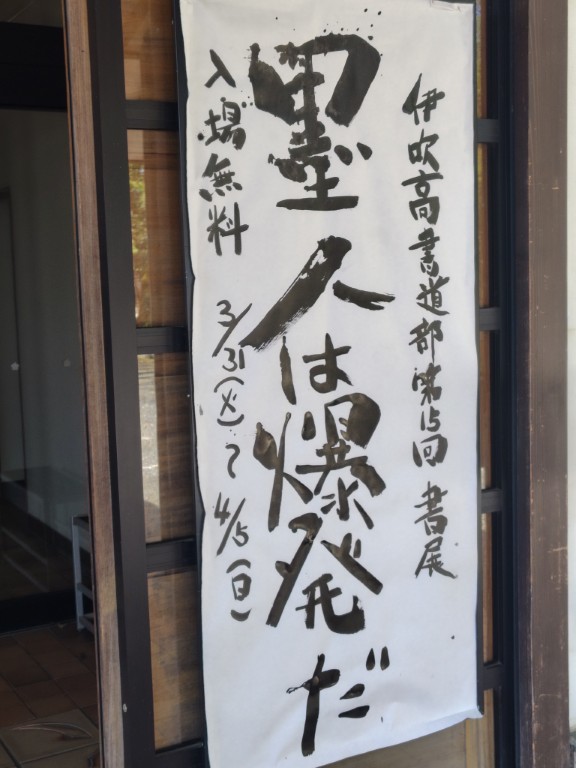 伊吹高書道部第15回 書展
墨人は爆発だ
入場無料 3/31(火)~4/5(日)